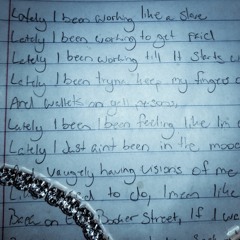 Lately I been working like a slave
Lately I been working to get paid
Lately I been working till it starts
Lately I been tryna keep my fingers
And wallets on
Lately I been I been feeling like I'm
Lately I Just aint been in the mood
vaugely having visions of me
to do, I mean like
Back on Booker Street, If I